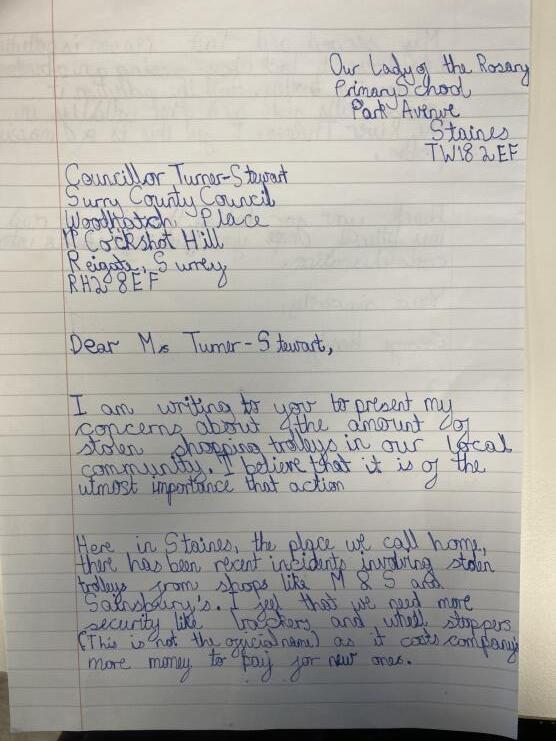 Our Lady of the Rosary
Primary School
Park Avenue
Staines
TW18 2EF
Councillor Turner-Stewart
Surry County Council
Woodhatch Place
11 Cockshot Hill
Reigate, Surrey
RH2 8EF
Dear Ms Turner-Stewart,
I am writing to you to present my
concerns about the amount of
stolen shopping trolleys in our local
community. I believe that it is of the
utmost importance that action
Here in Staines, the place we call home,
there has been recent incidents involving stolen
trolleys from shops like M & S and
Sainsbury's. I feel that we need more
security like trackers and wheel stoppers
(This is not the official name) as it costs company's
more money to pay for new ones.